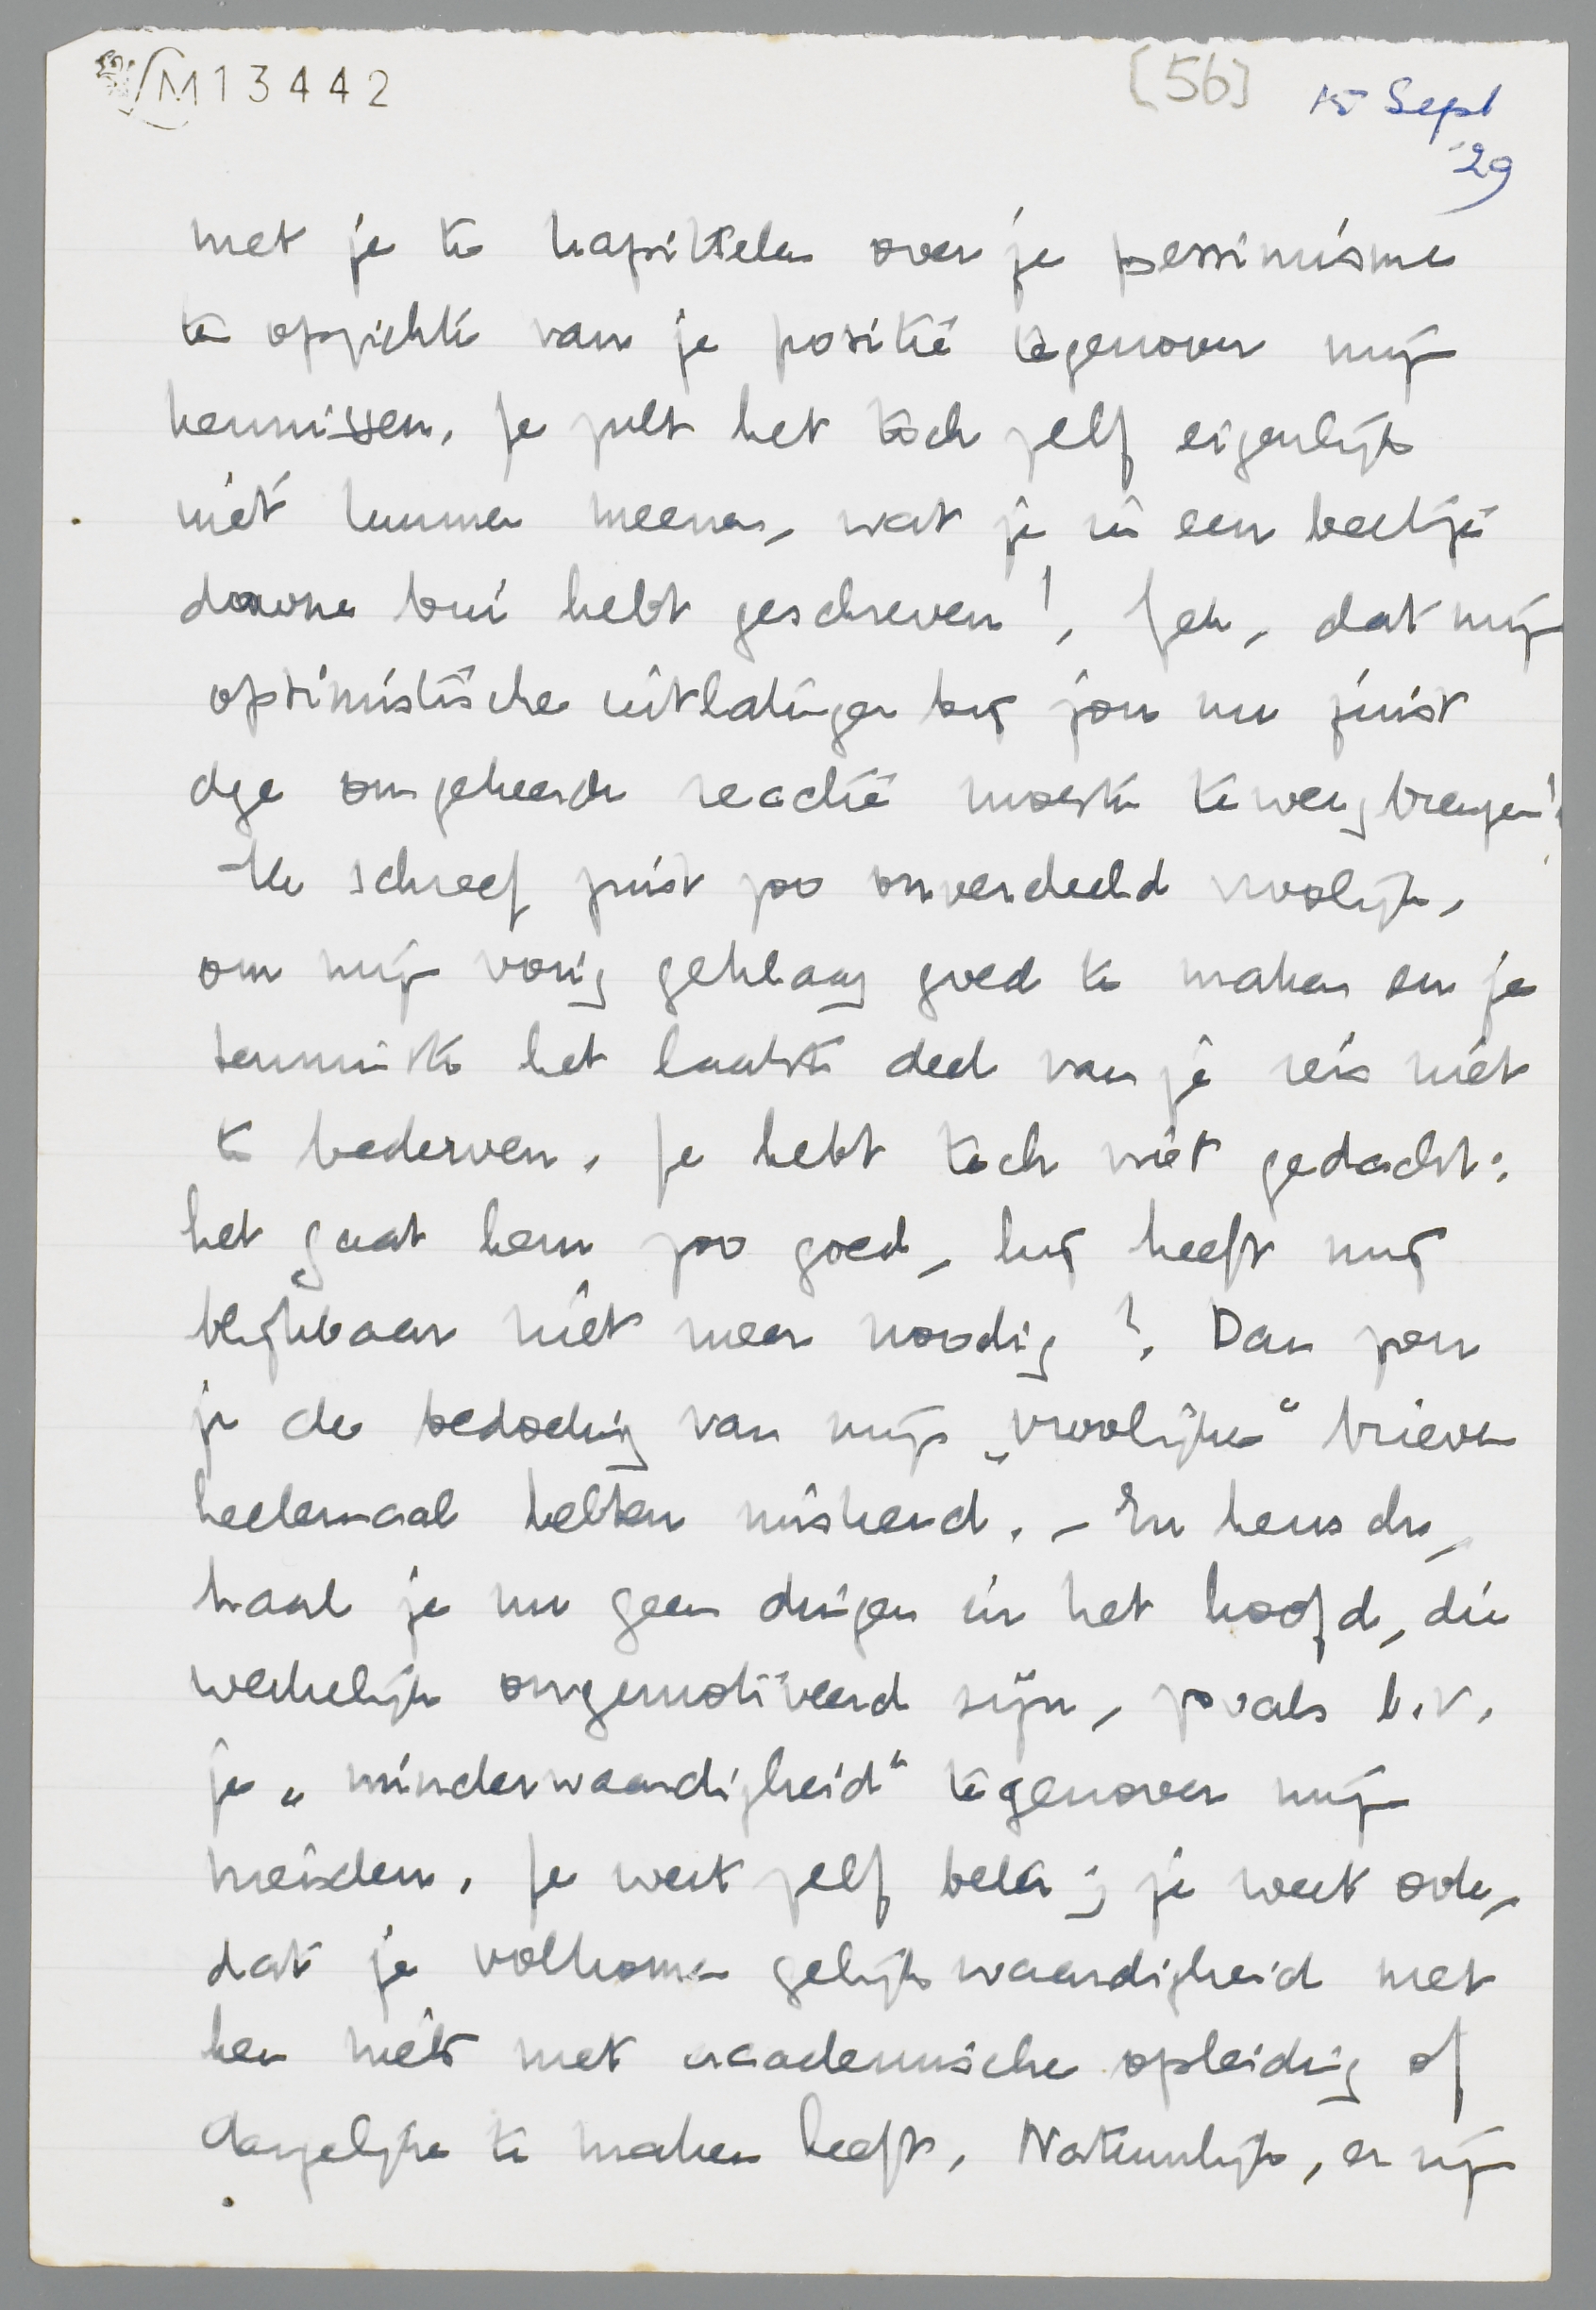 M13442
[56]
15 Sept
'29
met je te kapittelen over je pessimisme
ten opzichte van je positie tegenover mijn
kennissen. Je zult het toch zelf eigenlijk
niet kunnen meenen, wat je in een beetje
downe bui hebt geschreven! Jeh, dat mijn
optimistische uitlatingen bij jou nu juist
de omgekeerde reactie moesten teweegbrengen!
Ik schreef juist zoo onverdeeld vroolijk,
om mijn vorig geklaag goed te maken en je
tenminste het laatste deel van je reis niet
te bederven. Je hebt toch niet gedacht:
het gaat hem zoo goed, hij heeft mij
blijkbaar niet meer noodig? Dan zou
je de bedoeling van mijn „vroolijke“ brieven
heelemaal hebben miskend. – En heusch,
haal je nu geen dingen in het hoofd, die
werkelijk ongemotiveerd zijn, zooals b.v.
je „minderwaardigheid“ tegenover mijn
vrienden. Je weet zelf beter; je weet ook,
dat je volkomen gelijkwaardigheid met
hen niets met academische opleiding of
dergelijke te maken heeft. Natuurlijk, er zijn